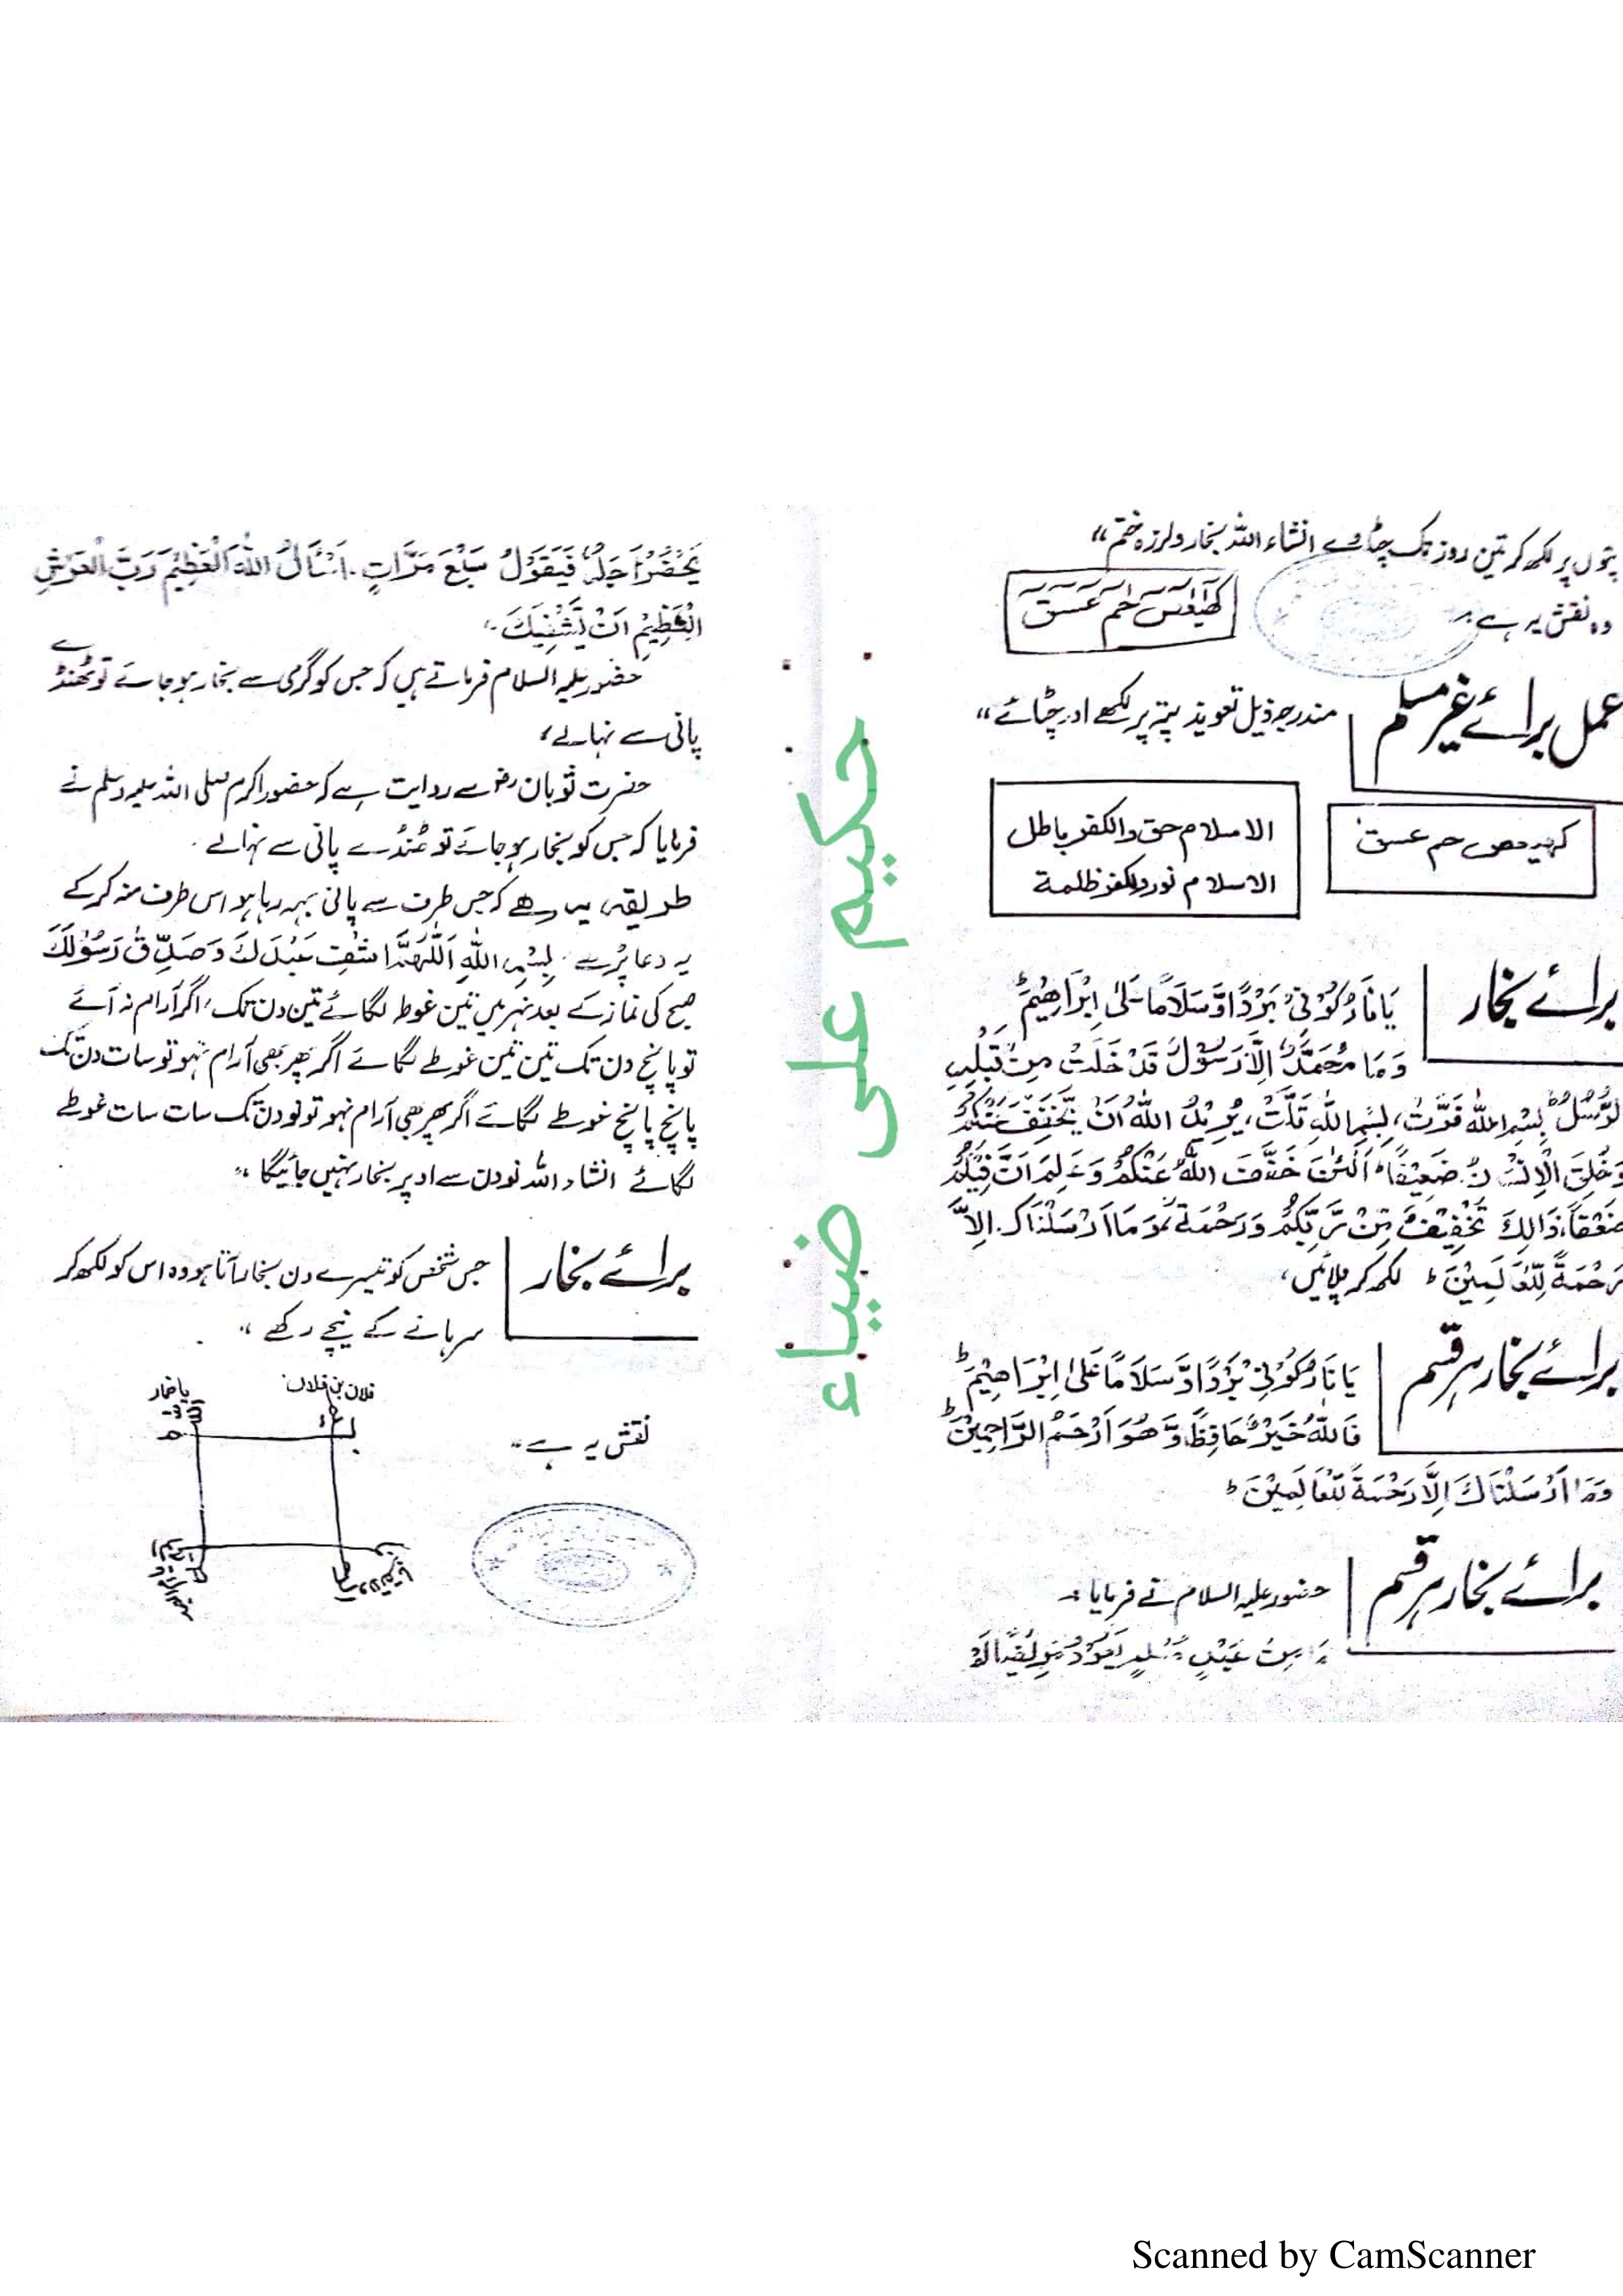 پتوں پر لکھ کر تین روز تک چٹا دے انشاء اللہ بخار و لرزہ ختم"
وہ نقش یہ ہے :۔
كهيعص حم عسق
عمل برائے غیر مسلم
مندرجہ ذیل تعویذ پتے پر لکھے اور چٹائے"
كهيعص حم عسق
الاسلام حق والکفر باطل
الاسلام نور والکفر ظلمة
برائے بخار
يَا نَارُ كُوْنِيْ بَرْدًا وَّسَلَامًا عَلٰى اِبْرَاهِيْمَ ؕ
وَمَا مُحَمَّدٌ اِلَّا رَسُوْلٌ قَدْ خَلَتْ مِنْ قَبْلِهِ
الرُّسُلُ بِسْمِ اللّٰهِ بِسْمِ اللّٰهِ يُرِيْدُ اللّٰهُ اَنْ يُّخَفِّفَ عَنْكُمْ
وَخُلِقَ الْاِنْسٰنُ ضَعِيْفًا ؕ اَلْـٰٔنَ خَفَّفَ اللّٰهُ عَنْكُمْ وَعَلِمَ اَنَّ فِيْكُمْ
ضَعْفًا، ذَالِكَ تَخْفِيْفٌ مِّنْ رَّبِّكُمْ وَرَحْمَةٌ وَمَا اَرْسَلْنَاكَ اِلَّا
رَحْمَةً لِّلْعَالَمِيْنَ ؕ لکھ کر پلائیں،
برائے بخار ہر قسم
يَا نَارُ كُوْنِيْ بَرْدًا وَّسَلَامًا عَلٰى اِبْرَاهِيْمَ ؕ
فَاللّٰهُ خَيْرٌ حَافِظًا وَّهُوَ اَرْحَمُ الرَّاحِمِيْنَ ؕ
وَمَا اَرْسَلْنَاكَ اِلَّا رَحْمَةً لِّلْعَالَمِيْنَ ؕ
برائے بخار ہر قسم
حضور علیہ السلام نے فرمایا :۔
يَعُوْدُ مَرِيْضًا لَمْ
يَحْضُرْ اَجَلُهٗ فَيَقُوْلُ سَبْعَ مَرَّاتٍ۔ اَسْئَالُ اللّٰهَ الْعَظِيْمَ رَبَّ الْعَرْشِ
الْعَظِيْمِ اَنْ يَّشْفِيَكَ۔
حضور علیہ السلام فرماتے ہیں کہ جس کو گرمی سے بخار ہو جائے تو ٹھنڈے
پانی سے نہالے،
حضرت ثوبان رض سے روایت ہے کہ حضور اکرم صلی اللہ علیہ وسلم نے
فرمایا کہ جس کو بخار ہو جائے تو ٹھنڈے پانی سے نہالے۔
طریقہ یہ ہے کہ جس طرف سے پانی بہہ رہا ہو اس طرف منہ کر کے
یہ دعا پڑھے۔ بِسْمِ اللّٰهِ اَللّٰهُمَّ اشْفِ عَبْدَكَ وَصَدِّقْ رَسُوْلَكَ
صبح کی نماز کے بعد نہر میں تین غوطہ لگائے تین دن تک، اگر آرام نہ آئے
تو پانچ دن تک تین تین غوطے لگائے اگر پھر بھی آرام نہو تو سات دن تک
پانچ پانچ غوطے لگائے اگر پھر بھی آرام نہو تو نو دن تک سات سات غوطے
لگائے انشاء اللہ نو دن سے اوپر بخار نہیں جائیگا"
برائے بخار
جس شخص کو تیسرے دن بخار آتا ہو وہ اس کو لکھ کر
سرہانے کے نیچے رکھے"
نقش یہ ہے
فلان بن فلان
حکیم علی ضیاء
Scanned by CamScanner